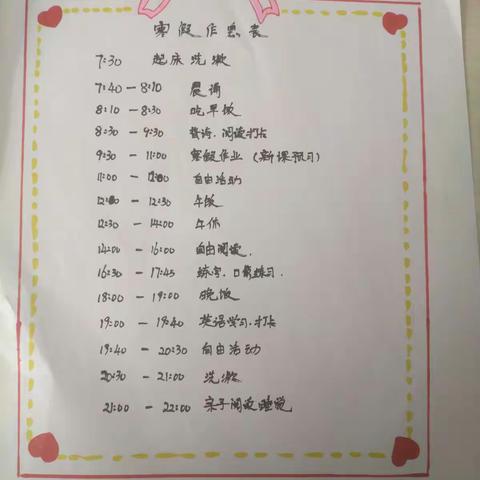 寒假作息表
7:30 起床洗漱
7:40-8:10 晨诵
8:10-8:30 吃早饭
8:30-9:30 背诗、阅读打卡
9:30-11:00 寒假作业(新课预习)
11:00-12:00 自由活动
12:00-12:30 午饭
12:30-14:00 午休
14:00-16:00 自由阅读.
16:30-17:45 练字、口算练习.
18:00-19:00 晚饭
19:00-19:40 英语学习、打卡
19:40-20:30 自由活动
20:30-21:00 洗漱
21:00-22:00 亲子阅读睡觉